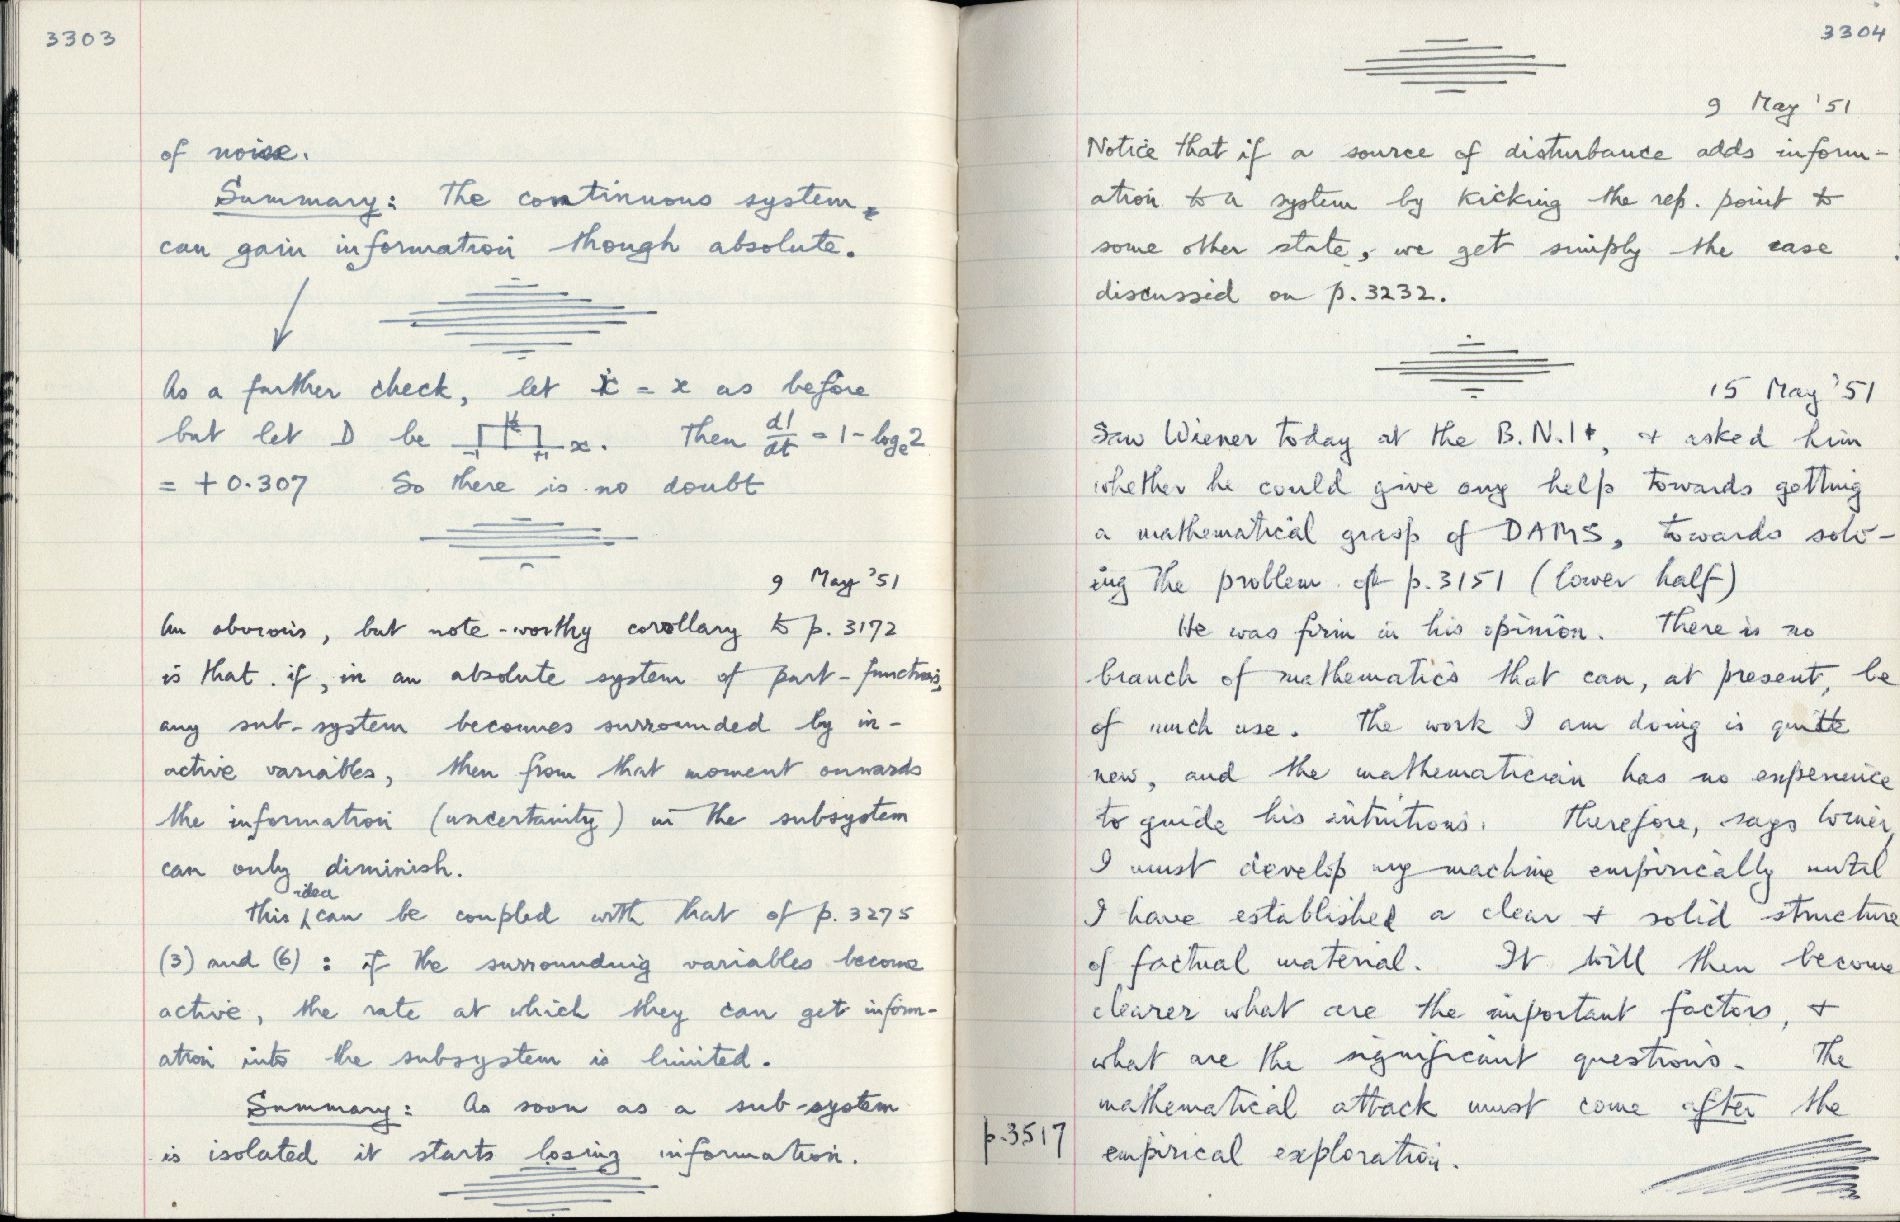 3303
of noise.
Summary: The continuous system,
can gain information though absolute.
As a further check, let ẋ = x as before
but let D be ½ -1 +1 x. Then dI/dt = 1 - logₑ2
= + 0.307 So there is no doubt
9 May '51
An obvious, but note-worthy corollary to p. 3172
is that if, in an absolute system of part-functions,
any sub-system becomes surrounded by in-
active variables, then from that moment onwards
the information (uncertainty) in the subsystem
can only diminish.
This idea can be coupled with that of p. 3275
(3) and (6): if the surrounding variables become
active, the rate at which they can get inform-
ation into the subsystem is limited.
Summary: As soon as a sub-system
is isolated it starts losing information.
3304
9 May '51
Notice that if a source of disturbance adds inform-
ation to a system by kicking the rep. point to
some other state, we get simply the case
discussed on p. 3232.
15 May '51
Saw Wiener today at the B.N.I+, + asked him
whether he could give any help towards getting
a mathematical grasp of DAMS, towards solv-
ing the problem of p. 3151 (lower half)
He was firm in his opinion. There is no
branch of mathematics that can, at present, be
of much use. The work I am doing is quite
new, and the mathematician has no experience
to guide his intuitions. Therefore, says Wiener,
I must develop my machine empirically until
I have established a clear + solid structure
of factual material. It will then become
clearer what are the important factors, +
what are the significant questions. The
mathematical attack must come after the
p.3517
empirical exploration.